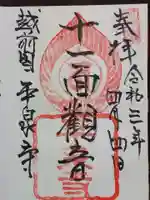 奉拝 令和三年
四月四日
十一面觀音
越前國 平泉寺